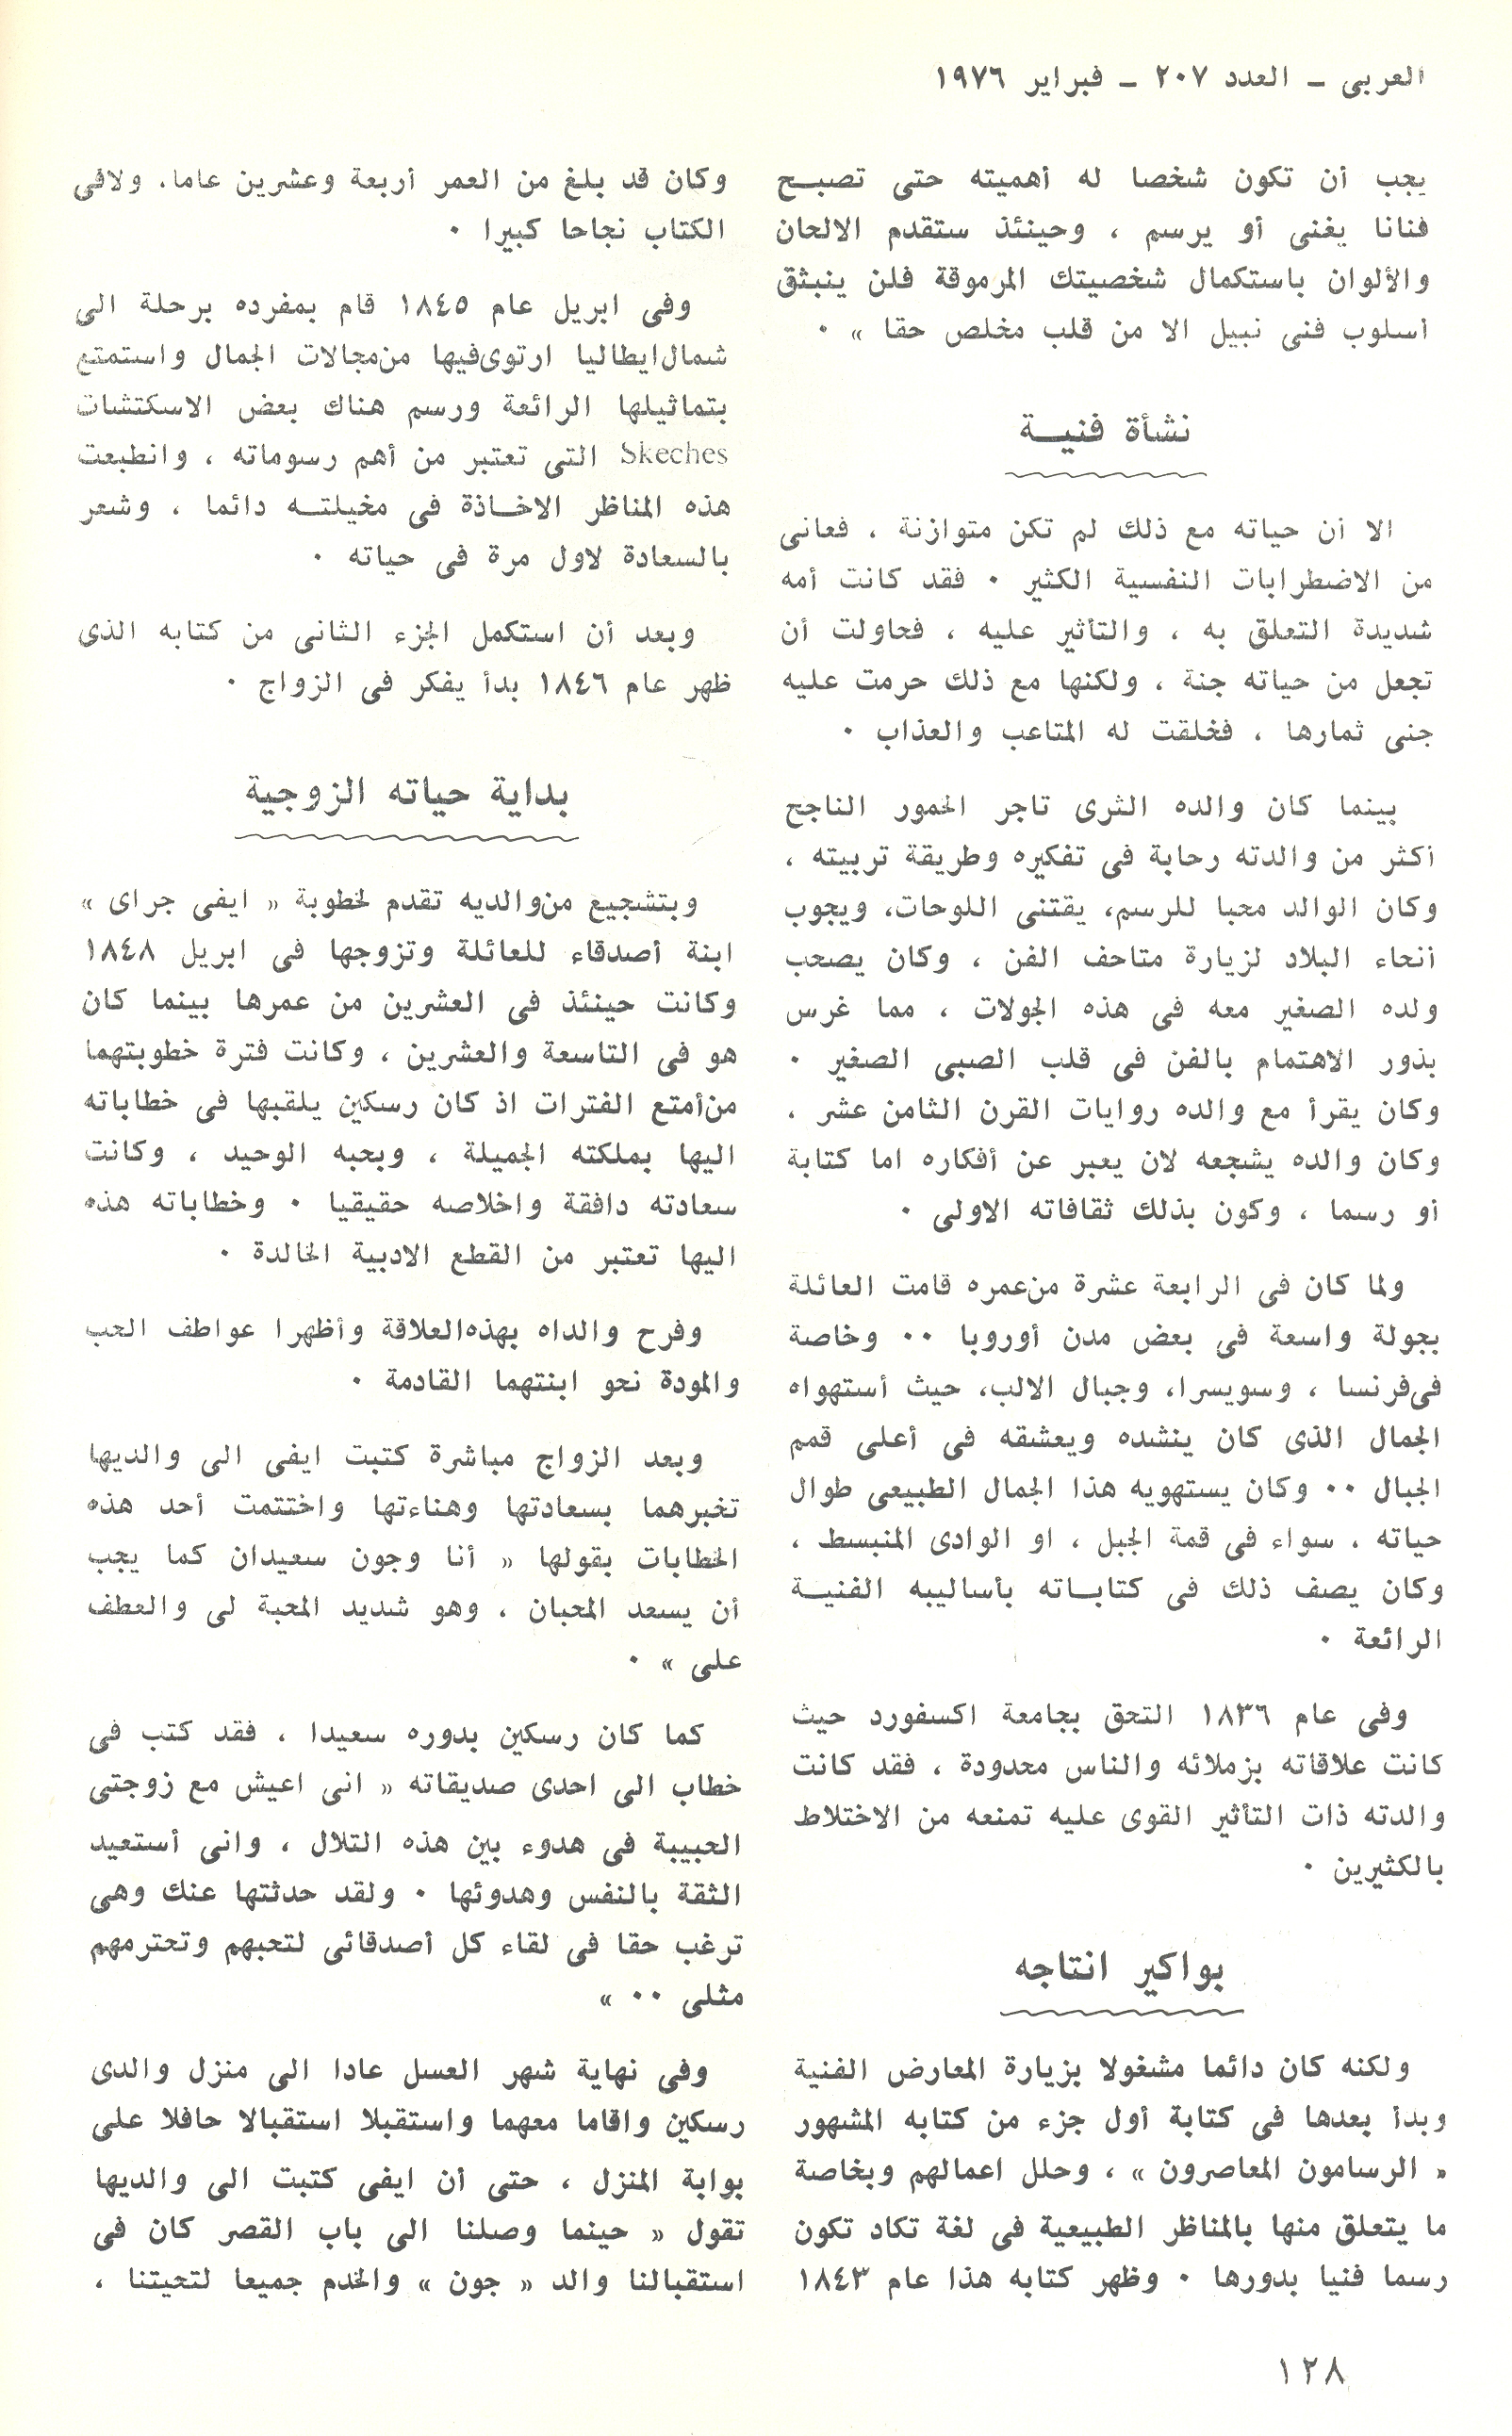 العربى ـ العدد ٢٠٧ ـ فبراير ١٩٧٦
يجب أن تكون شخصا له أهميته حتى تصبـح
فنانا يغنى أو يرسم ، وحينئذ ستقدم الالحان
والألوان باستكمال شخصيتك المرموقة فلن ينبثق
أسلوب فنى نبيل الا من قلب مخلص حقا » ٠
نشأة فنيـة
الا أن حياته مع ذلك لم تكن متوازنة ، فعانى
من الاضطرابات النفسية الكثير ٠ فقد كانت أمه
شديدة التعلق به ، والتأثير عليه ، فحاولت أن
تجعل من حياته جنة ، ولكنها مع ذلك حرمت عليه
جنى ثمارها ، فخلقت له المتاعب والعذاب ٠
بينما كان والده الثرى تاجر الخمور الناجح
أكثر من والدته رحابة فى تفكيره وطريقة تربيته ،
وكان الوالد محبا للرسم، يقتنى اللوحات، ويجوب
أنحاء البلاد لزيارة متاحف الفن ، وكان يصحب
ولده الصغير معه فى هذه الجولات ، مما غرس
بذور الاهتمام بالفن فى قلب الصبى الصغير ٠
وكان يقرأ مع والده روايات القرن الثامن عشر ،
وكان والده يشجعه لان يعبر عن أفكاره اما كتابة
أو رسما ، وكون بذلك ثقافاته الاولى ٠
ولما كان فى الرابعة عشرة من عمره قامت العائلة
بجولة واسعة فى بعض مدن أوروبا ٠٠ وخاصة
فى فرنسا ، وسويسرا، وجبال الالب، حيث أستهواه
الجمال الذى كان ينشده ويعشقه فى أعلى قمم
الجبال ٠٠ وكان يستهويه هذا الجمال الطبيعى طوال
حياته ، سواء فى قمة الجبل ، او الوادى المنبسط ،
وكان يصف ذلك فى كتابـاته بأساليبه الفنيـة
الرائعة ٠
وفى عام ١٨٣٦ التحق بجامعة اكسفورد حيث
كانت علاقاته بزملائه والناس محدودة ، فقد كانت
والدته ذات التأثير القوى عليه تمنعه من الاختلاط
بالكثيرين ٠
بواكير انتاجه
ولكنه كان دائما مشغولا بزيارة المعارض الفنية
وبدأ بعدها فى كتابة أول جزء من كتابه المشهور
« الرسامون المعاصرون » ، وحلل اعمالهم وبخاصة
ما يتعلق منها بالمناظر الطبيعية فى لغة تكاد تكون
رسما فنيا بدورها ٠ وظهر كتابه هذا عام ١٨٤٣
وكان قد بلغ من العمر أربعة وعشرين عاما، ولاقى
الكتاب نجاحا كبيرا ٠
وفى ابريل عام ١٨٤٥ قام بمفرده برحلة الى
شمال ايطاليا ارتوى فيها من مجالات الجمال واستمتع
بتماثيلها الرائعة ورسم هناك بعض الاسكتشات
Skeches التى تعتبر من أهم رسوماته ، وانطبعت
هذه المناظر الاخـاذة فى مخيلتـه دائما ، وشعر
بالسعادة لاول مرة فى حياته ٠
وبعد أن استكمل الجزء الثانى من كتابه الذى
ظهر عام ١٨٤٦ بدأ يفكر فى الزواج ٠
بداية حياته الزوجية
وبتشجيع من والديه تقدم لخطوبة « ايفى جراى »
ابنة أصدقاء للعائلة وتزوجها فى ابريل ١٨٤٨
وكانت حينئذ فى العشرين من عمرها بينما كان
هو فى التاسعة والعشرين ، وكانت فترة خطوبتهما
من أمتع الفترات اذ كان رسكين يلقبها فى خطاباته
اليها بملكته الجميلة ، وبحبه الوحيد ، وكانت
سعادته دافقة واخلاصه حقيقيا ٠ وخطاباته هذه
اليها تعتبر من القطع الادبية الخالدة ٠
وفرح والداه بهذه العلاقة وأظهرا عواطف الحب
والمودة نحو ابنتهما القادمة ٠
وبعد الزواج مباشرة كتبت ايفى الى والديها
تخبرهما بسعادتها وهناءتها واختتمت أحد هذه
الخطابات بقولها « أنا وجون سعيدان كما يجب
أن يسعد المحبان ، وهو شديد المحبة لى والعطف
على » ٠
كما كان رسكين بدوره سعيدا ، فقد كتب فى
خطاب الى احدى صديقاته « انى اعيش مع زوجتى
الحبيبة فى هدوء بين هذه التلال ، وانى أستعيد
الثقة بالنفس وهدوئها ٠ ولقد حدثتها عنك وهى
ترغب حقا فى لقاء كل أصدقائى لتحبهم وتحترمهم
مثلى ٠٠ »
وفى نهاية شهر العسل عادا الى منزل والدى
رسكين واقاما معهما واستقبلا استقبالا حافلا على
بوابة المنزل ، حتى أن ايفى كتبت الى والديها
تقول « حينما وصلنا الى باب القصر كان فى
استقبالنا والد « جون » والخدم جميعا لتحيتنا ،
١٢٨